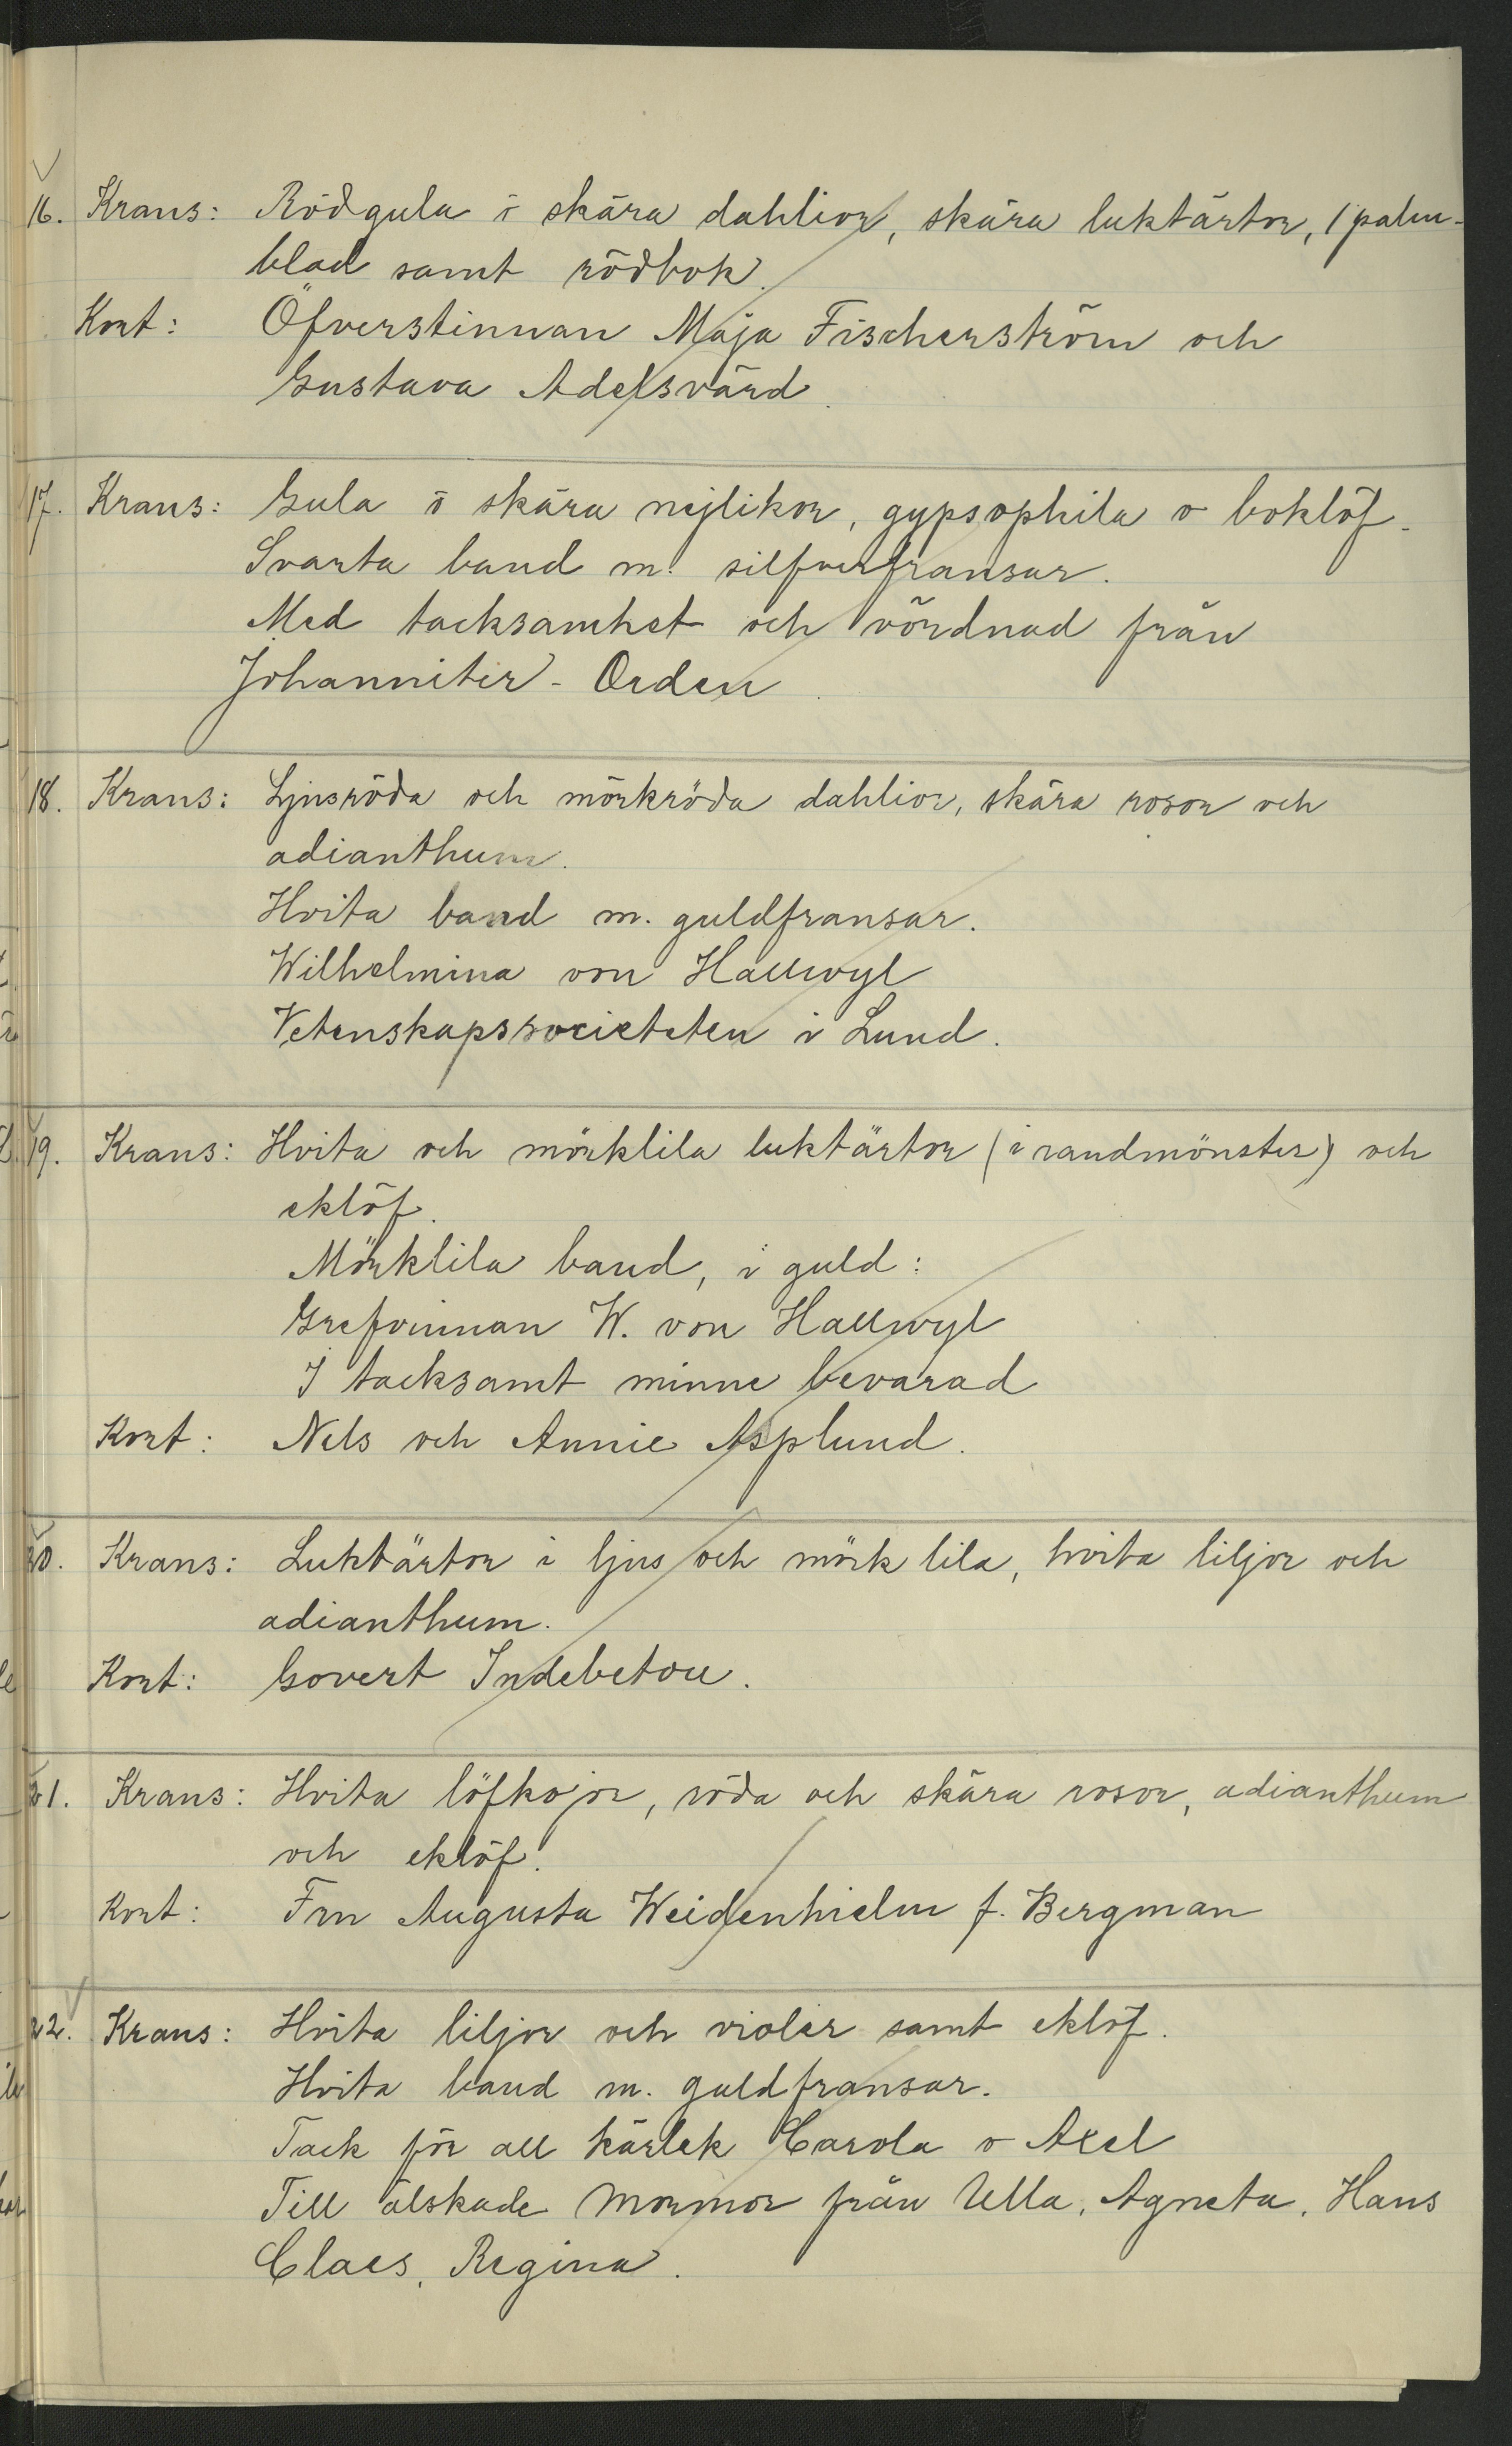 16. Krans: Rödgula o skära dahlior, skära luktärtor, 1 palm-
blad samt rödbok.
Kort: Öfverstinnan Maja Fischerström och
Gustava Adelsvärd.
17. Krans: Gula o skära nejlikor, gypsophila o boklöf.
Svarta band m. silfverfransar.
Med tacksamhet och vördnad från
Johanniter-Orden.
18. Krans: Ljusröda och mörkröda dahlior, skära rosor och
adianthum.
Hvita band m. guldfransar.
Wilhelmina von Hallwyl
Vetenskapssocieteten i Lund.
19. Krans: Hvita och mörklila luktärtor (i randmönster) och
eklöf.
Mörklila band, i guld:
Grefvinnan W. von Hallwyl
I tacksamt minne bevarad
Kort: Nils och Annie Asplund.
20. Krans: Luktärtor i ljus och mörk lila, hvita liljor och
adianthum.
Kort: Govert Indebetou.
21. Krans: Hvita löfkojor, röda och skära rosor, adianthum
och eklöf.
Kort: Fru Augusta Weidenhielm f. Bergman
22. Krans: Hvita liljor och violer samt eklöf.
Hvita band m. guldfransar.
Tack för all kärlek Carola o Axel
Till älskade Mormor från Ulla, Agneta, Hans
Claes, Regina.